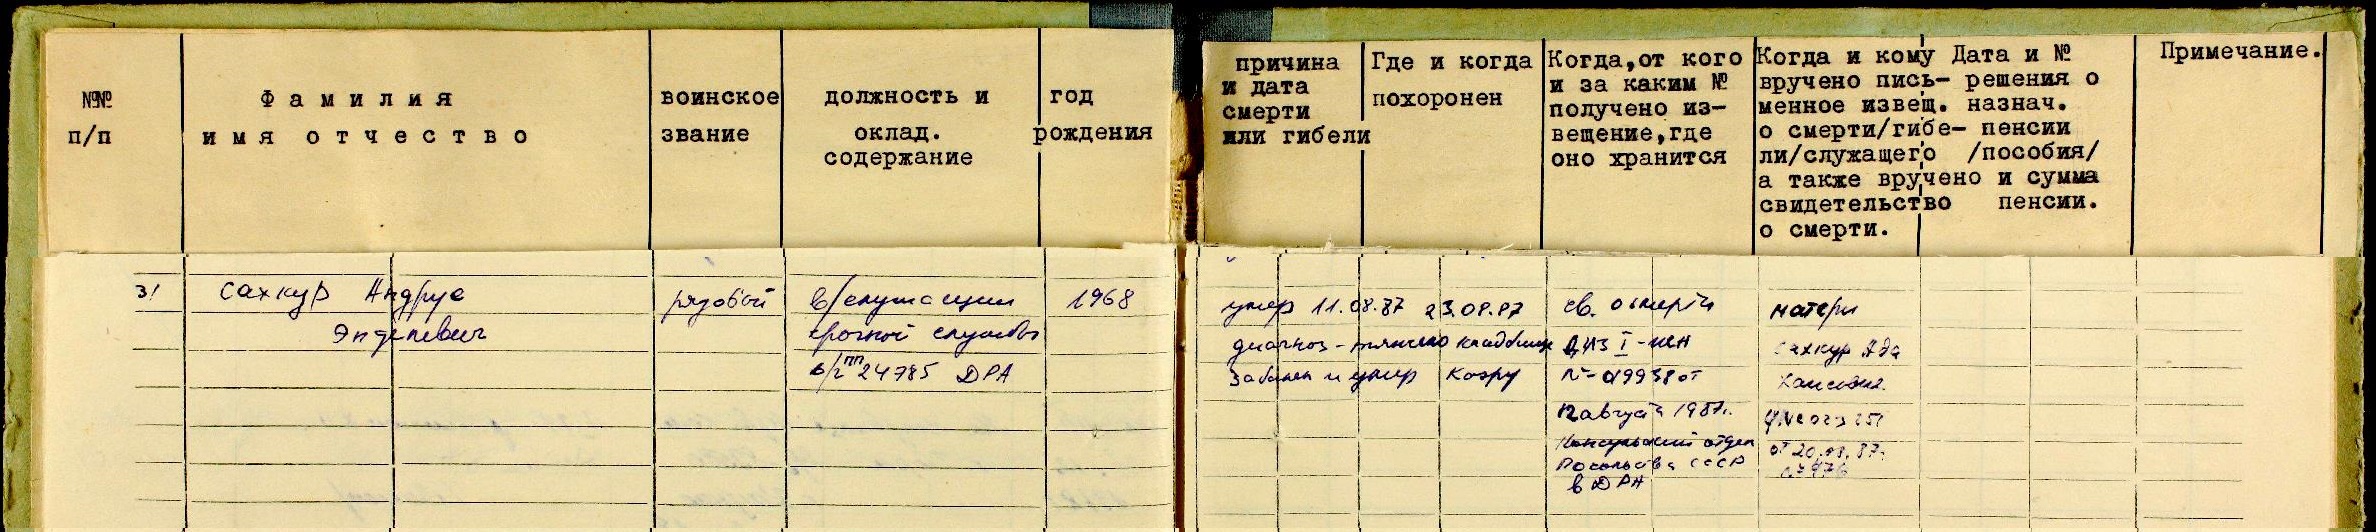 №№
п/п
Фамилия
имя отчество
воинское
звание
должность и
оклад.
содержание
год
рождения
причина
и дата
смерти
или гибели
Где и когда
похоронен
Когда, от кого
и за каким №
получено из-
вещение, где
оно хранится
Когда и кому
вручено пись-
менное извещ.
о смерти/гибе-
ли/служащего
а также вручено
свидетельство
о смерти.
Дата и №
решения о
назнач.
пенсии
/пособия/
и сумма
пенсии.
Примечание.
31
Сахкур Андрус
Энделевич
рядовой
в/служащий
срочной службы
в/ч пп 24785 ДРА
1968
умер 11.08.87
диагноз -
и умер
23.08.87
кладбище
Козру
св. о смерти
I-
№
12 августа 1987г.
Консульский отдел
Посольства СССР
в ДРА
матери
Сахкур Ада
от 20.08.87г.